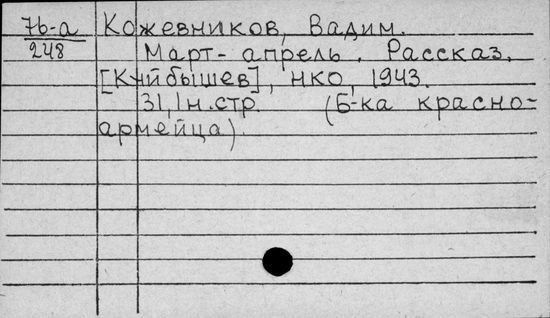 7б-а Кожевников, Вадим.
248
Март-апрель. Рассказ.
[Куйбышев], НКО, 1943.
31, 1 н.стр. (Б-ка красно-
армейца).